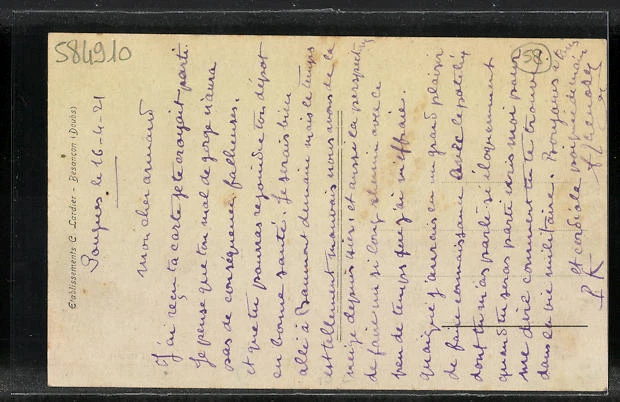 584910
58
Etablissements C. Lardier - Besançon (Doubs)
le 16-4-21
Mon cher Armand
J'ai reçu ta carte je te croyait parti.
Je pense que ton mal de gorge n'aura
pas de conséquences fâcheuses.
et que tu pourras rejoindre ton dépot
en bonne santé. Je serais bien
allé à Beaumont demain mais le temps
est tellement mauvais nous avons de la
neige depuis hier, et aussi la perspective
de faire un si long chemin avec ce
peu de temps que j'ai m'effraie.
quoique j'aurais eu un grand plaisir
de faire connaissance avec le
dont tu m'as parlé si éloquemment
quand tu seras parti écris moi pour
me dire comment tu te trouves
dans la vie militaire. Bonjours à tous
et cordiale poignée de main